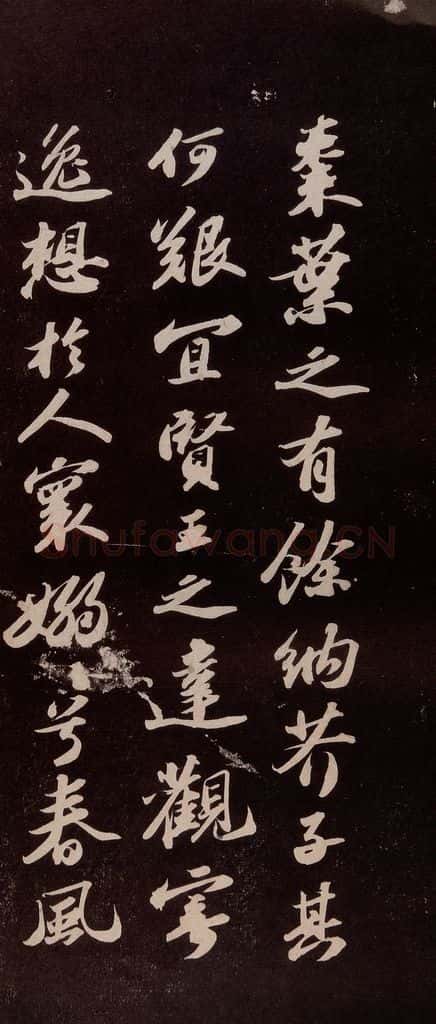 棗葉之有餘納芥子其
何艱宜賢王之達觀寄
逸想於人寰嫋〻兮春風
Shufawang.CN